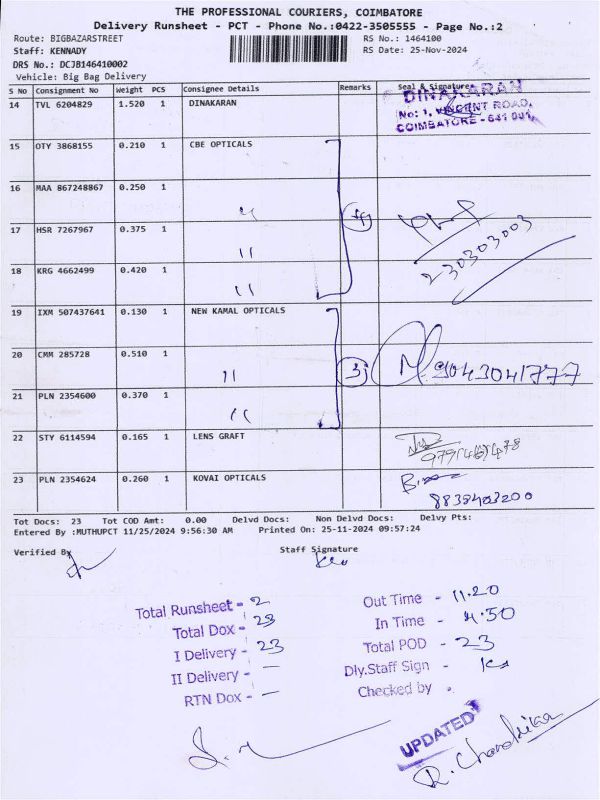 THE PROFESSIONAL COURIERS, COIMBATORE
Delivery Runsheet - PCT - Phone No.:0422-3505555 - Page No.:2
Route: BIGBAZARSTREET RS No.: 1464100
Staff: KENNADY RS Date: 25-Nov-2024
DRS No.: DCJB146410002
Vehicle: Big Bag Delivery
S No Consignment No Weight PCS Consignee Details Remarks Seal & Signature
14 TVL 6204829 1.520 1 DINAKARAN
DINAKARAN
No: 1, VINCENT ROAD,
COIMBATORE - 641 001.
15 OTY 3868155 0.210 1 CBE OPTICALS
16 MAA 867248867 0.250 1 "
17 HSR 7267967 0.375 1 "
230303003
18 KRG 4662499 0.420 1 "
19 IXM 507437641 0.130 1 NEW KAMAL OPTICALS
20 CMM 285728 0.510 1 " 3) 9043041777
21 PLN 2354600 0.370 1 "
22 STY 6114594 0.165 1 LENS GRAFT
23 PLN 2354624 0.260 1 KOVAI OPTICALS
8838403200
Tot Docs: 23 Tot COD Amt: 0.00 Delvd Docs: Non Delvd Docs: Delvy Pts:
Entered By :MUTHUPCT 11/25/2024 9:56:30 AM Printed On: 25-11-2024 09:57:24
Verified By Staff Signature
Total Runsheet - 2
Total Dox - 23
I Delivery - 23
II Delivery - —
RTN Dox - —
Out Time - 11.20
In Time - 4.50
Total POD - 23
Dly.Staff Sign -
Checked by -
UPDATED
R. Chandrika